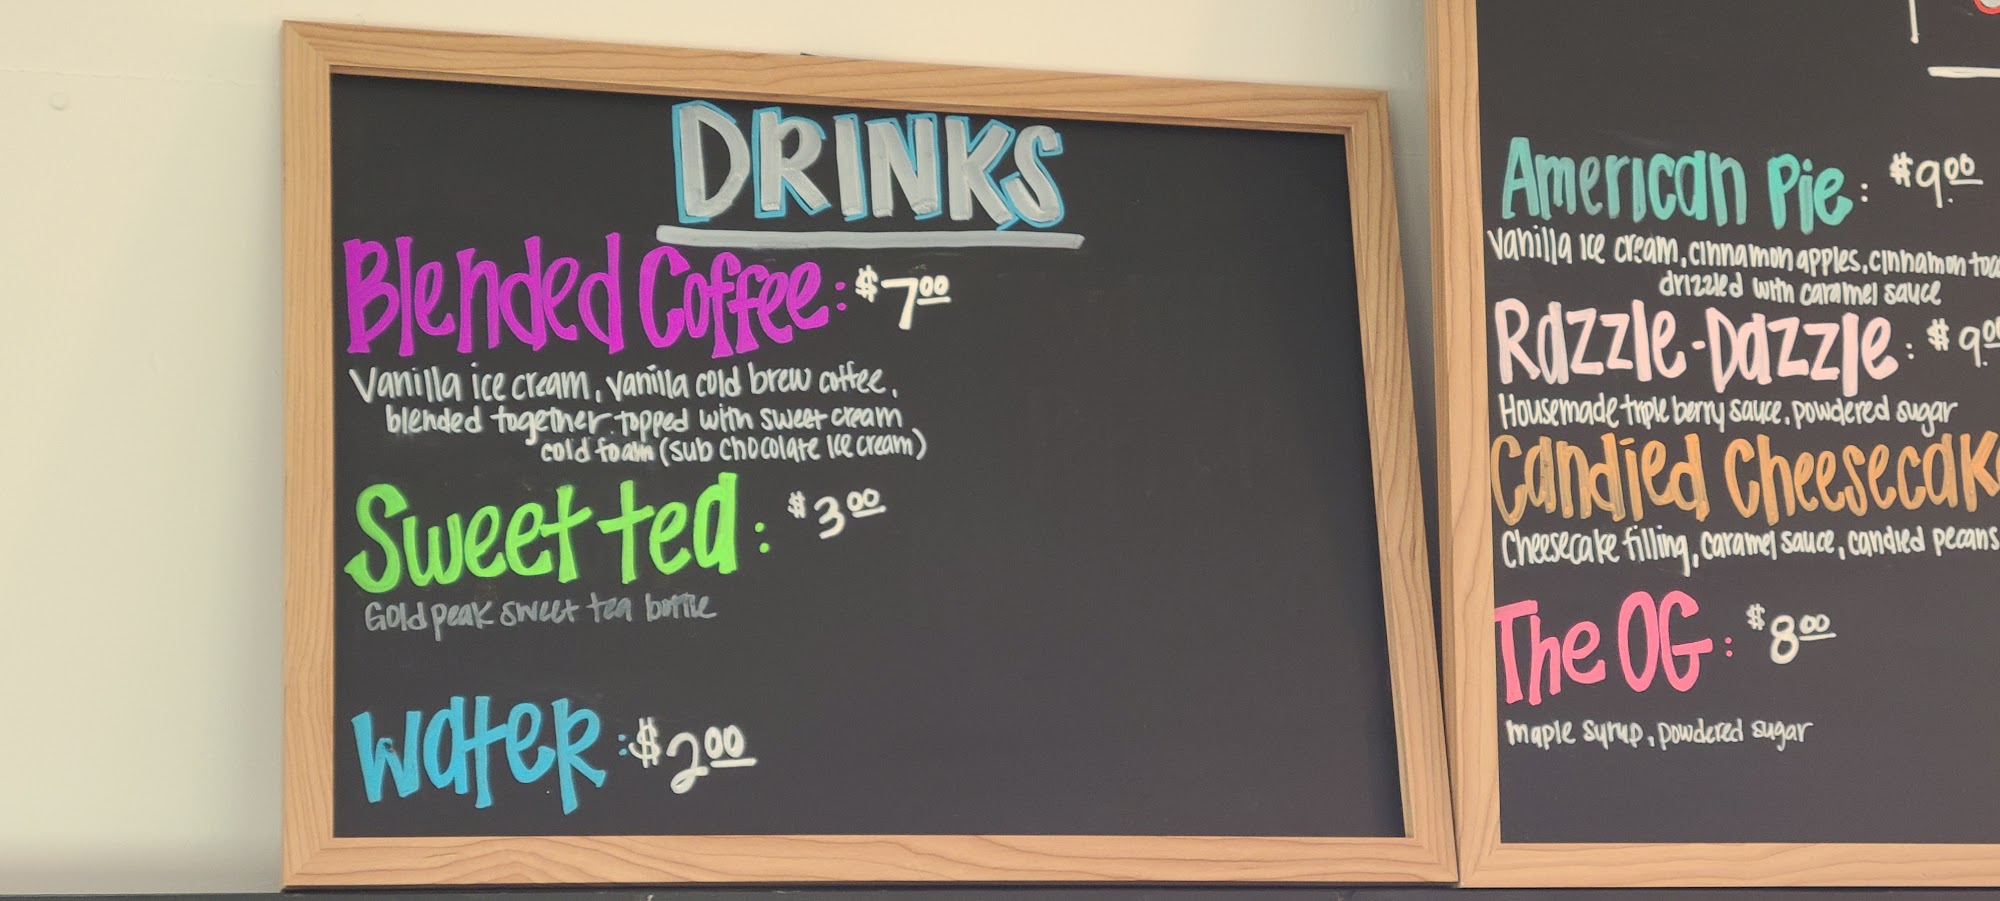 DRINKS
Blended Coffee: $7.00
Vanilla ice cream, vanilla cold brew coffee,
blended together. topped with sweet cream
cold foam (sub chocolate ice cream)
Sweet tea: $3.00
Gold peak sweet tea bottle
Water: $2.00
American Pie: $9.00
Vanilla ice cream, cinnamon apples, cinnamon
drizzled with caramel sauce
Razzle-Dazzle: $9.00
Housemade triple berry sauce, powdered sugar
Candied Cheesecake
Cheesecake filling, caramel sauce, candied pecans
The OG: $8.00
maple syrup, powdered sugar